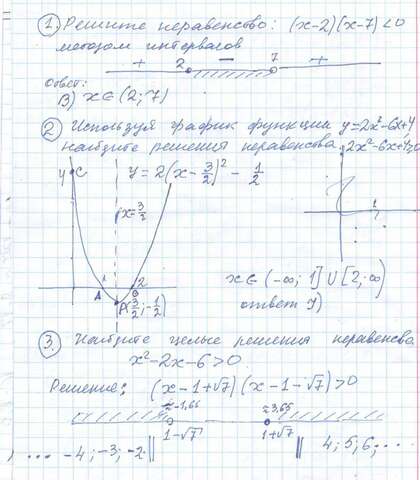 1) Решите неравенство: (x-2)(x-7)<0
методом интервалов
+ 2 - 7 +
ответ:
В) x∈(2;7)
2) Используя график функции y=2x²-6x+4
найдите решения неравенства 2x²-6x+4≥0
y C y=2(x-3/2)²-1/2
x=3/2
1 2
A B
(3/2;-1/2)
x∈(-∞;1]∪[2;∞)
ответ
3. Найдите целые решения неравенства
x²-2x-6>0
Решение: (x-1+√7)(x-1-√7)>0
≈-1,65 ≈3,65
1-√7 1+√7
... -4;-3;-2 || || 4;5;6;...